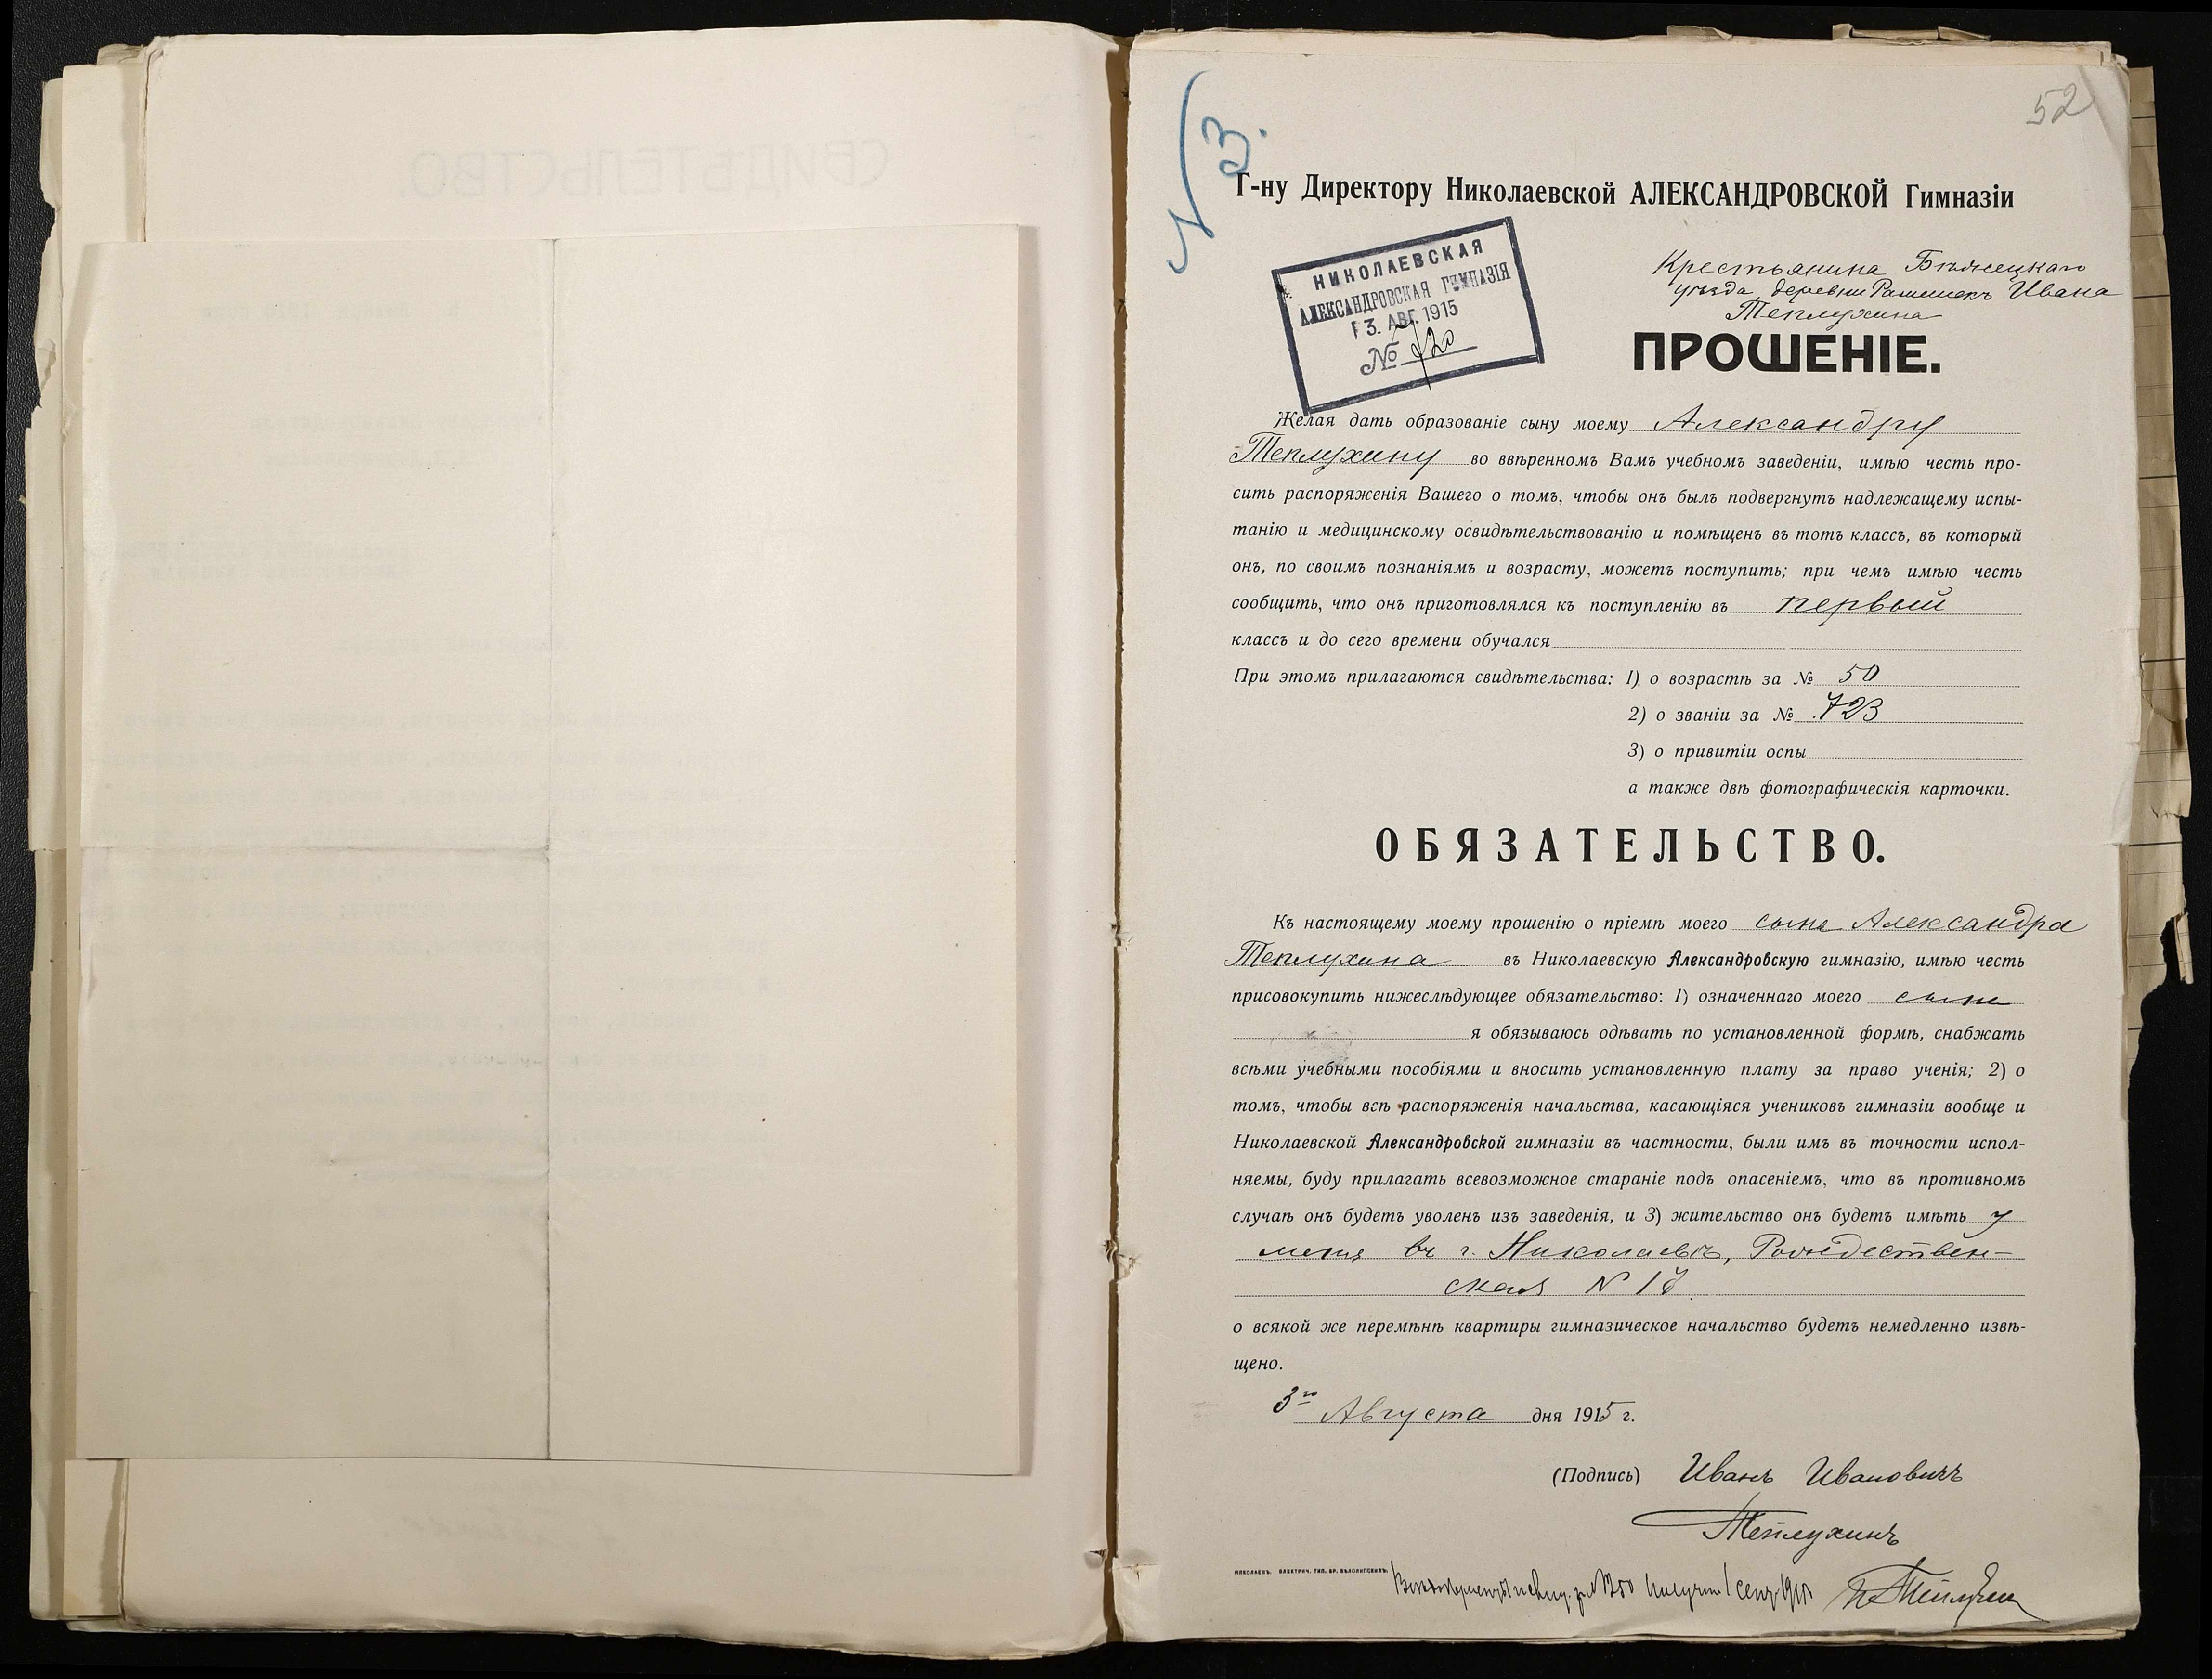 52
№ 3.
Г-ну Директору Николаевской АЛЕКСАНДРОВСКОЙ Гимназіи
НИКОЛАЕВСКАЯ
АЛЕКСАНДРОВСКАЯ ГИМНАЗІЯ
3. АВГ. 1915
№ 720
Крестьянина Бѣжецкаго
уѣзда деревни Ивана
Теплухина
ПРОШЕНІЕ.
Желая дать образованіе сыну моему Александру
Теплухину во ввѣренномъ Вамъ учебномъ заведеніи, имѣю честь про-
сить распоряженія Вашего о томъ, чтобы онъ былъ подвергнутъ надлежащему испы-
танію и медицинскому освидѣтельствованію и помѣщенъ въ тотъ классъ, въ который
онъ, по своимъ познаніямъ и возрасту, можетъ поступить; при чемъ имѣю честь
сообщить, что онъ приготовлялся къ поступленію въ первый
классъ и до сего времени обучался
При этомъ прилагаются свидѣтельства: 1) о возрастѣ за № 50
2) о званіи за № 723
3) о привитіи оспы
а также двѣ фотографическія карточки.
ОБЯЗАТЕЛЬСТВО.
Къ настоящему моему прошенію о пріемѣ моего сына Александра
Теплухина въ Николаевскую Александровскую гимназію, имѣю честь
присовокупить нижеслѣдующее обязательство: 1) означеннаго моего сына
я обязываюсь одѣвать по установленной формѣ, снабжать
всѣми учебными пособіями и вносить установленную плату за право ученія; 2) о
томъ, чтобы всѣ распоряженія начальства, касающіяся учениковъ гимназіи вообще и
Николаевской Александровской гимназіи въ частности, были имъ въ точности испол-
няемы, буду прилагать всевозможное стараніе подъ опасеніемъ, что въ противномъ
случаѣ онъ будетъ уволенъ изъ заведенія, и 3) жительство онъ будетъ имѣть у
меня въ г. Николаевѣ, Рождествен-
ская N 17
о всякой же перемѣнѣ квартиры гимназическое начальство будетъ немедленно извѣ-
щено.
3го Августа дня 1915 г.
(Подпись) Иванъ Ивановичъ
Теплухинъ
НИКОЛАЕВЪ. ЭЛЕКТРИЧ. ТИП. БР. БѢЛОЛИПСКИХЪ.
получил 1 сент.
СВИДѢТЕЛЬСТВО.